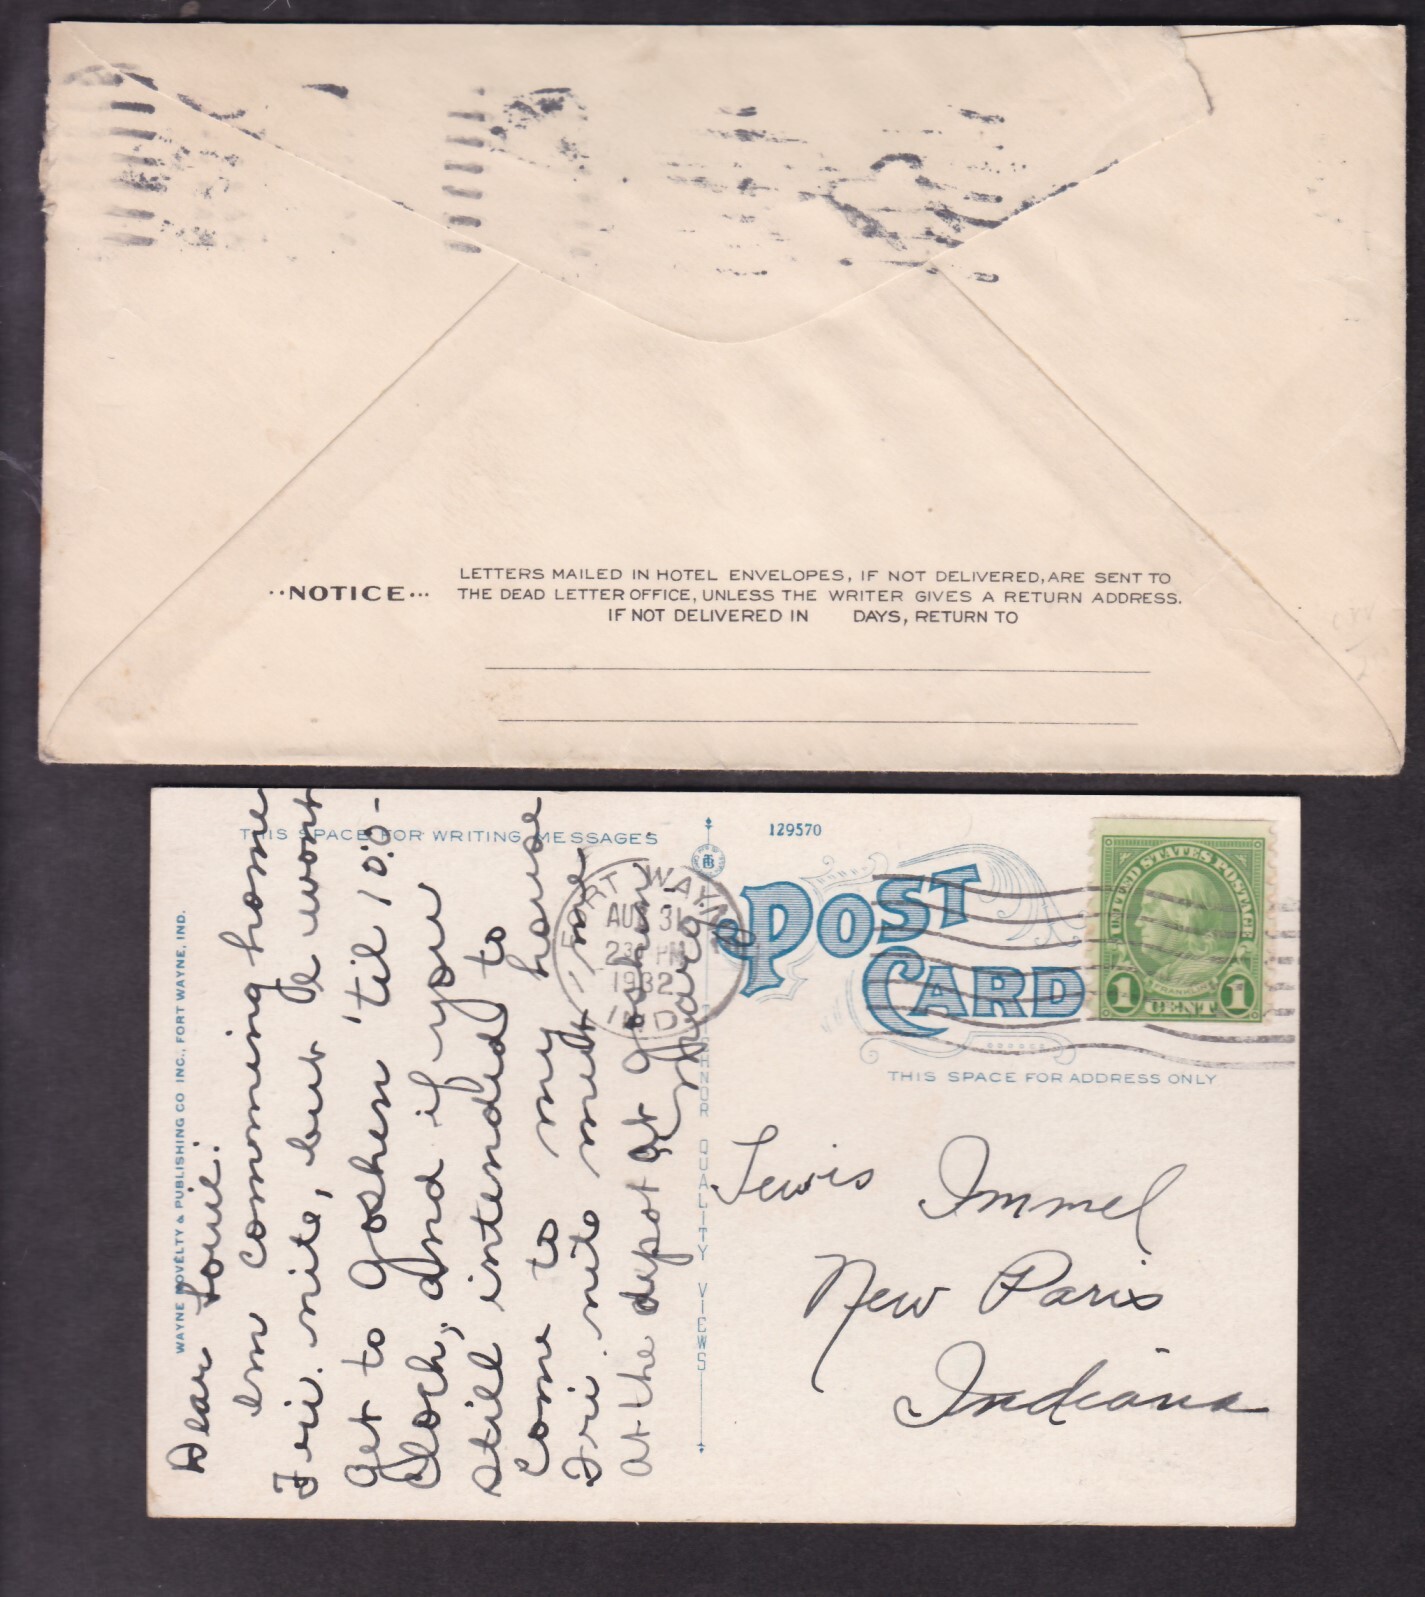 ··NOTICE···
LETTERS MAILED IN HOTEL ENVELOPES, IF NOT DELIVERED, ARE SENT TO
THE DEAD LETTER OFFICE, UNLESS THE WRITER GIVES A RETURN ADDRESS.
IF NOT DELIVERED IN DAYS, RETURN TO
THIS SPACE FOR WRITING MESSAGES
129570
POST CARD
THIS SPACE FOR ADDRESS ONLY
UNITED STATES POSTAGE
FRANKLIN
1 CENT 1
FORT WAYNE
AUG 31
PM
1932
IND.
WAYNE NOVELTY & PUBLISHING CO INC., FORT WAYNE, IND.
QUALITY VIEWS
Dear Louie:
Im comming home
Fri. nite, but I wont
get to Goshen 'til 10:0-
Clock, and if you
still intended to
come to my house
Fri. nite meet me
at the depot at Goshen.
Lewis Immel
New Paris
Indiana